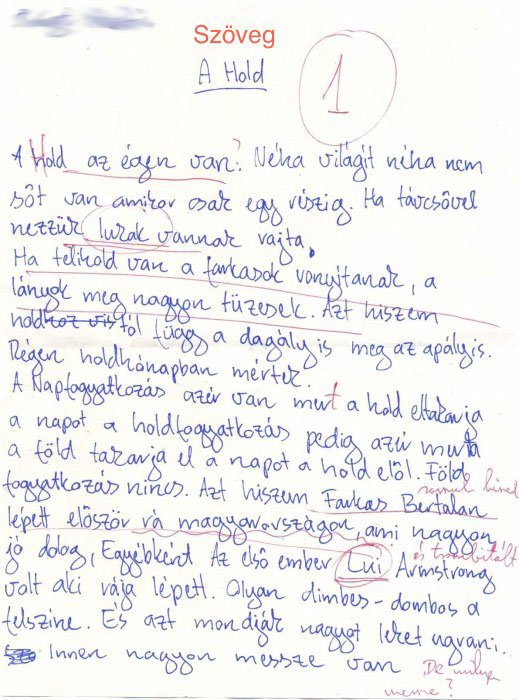 Szöveg
A Hold
1
A Hold az égen van? Néha világit néha nem
sőt van amikor csak egy részig. Ha távcsővel
nezzük lukak vannak rajta.
Ha telihold van a farkasok vonyítanak, a
lányok meg nagyon tüzesek. Azt hiszem
holdhoz vis től függ a dagály is meg az apály is.
Régen holdhónapban mértek.
A Napfogyatkozás azér van mert a hold eltakarja
a napot a holdfogyatkozás pedig azér mert
a föld takarja el a napot a hold elől. Föld
fogyatkozás nincs. Azt hiszem Farkas Bertalan
lépett először rá magyarországon, ami nagyon
jó dolog, Egyébként Az első ember Lui Armstrong
és trombitált
volt aki rája lépett. Olyan dimbes-dombos a
felszine. És azt mondják nagyot lehet ugrani.
Innen nagyon messze van
De milyen
messze?